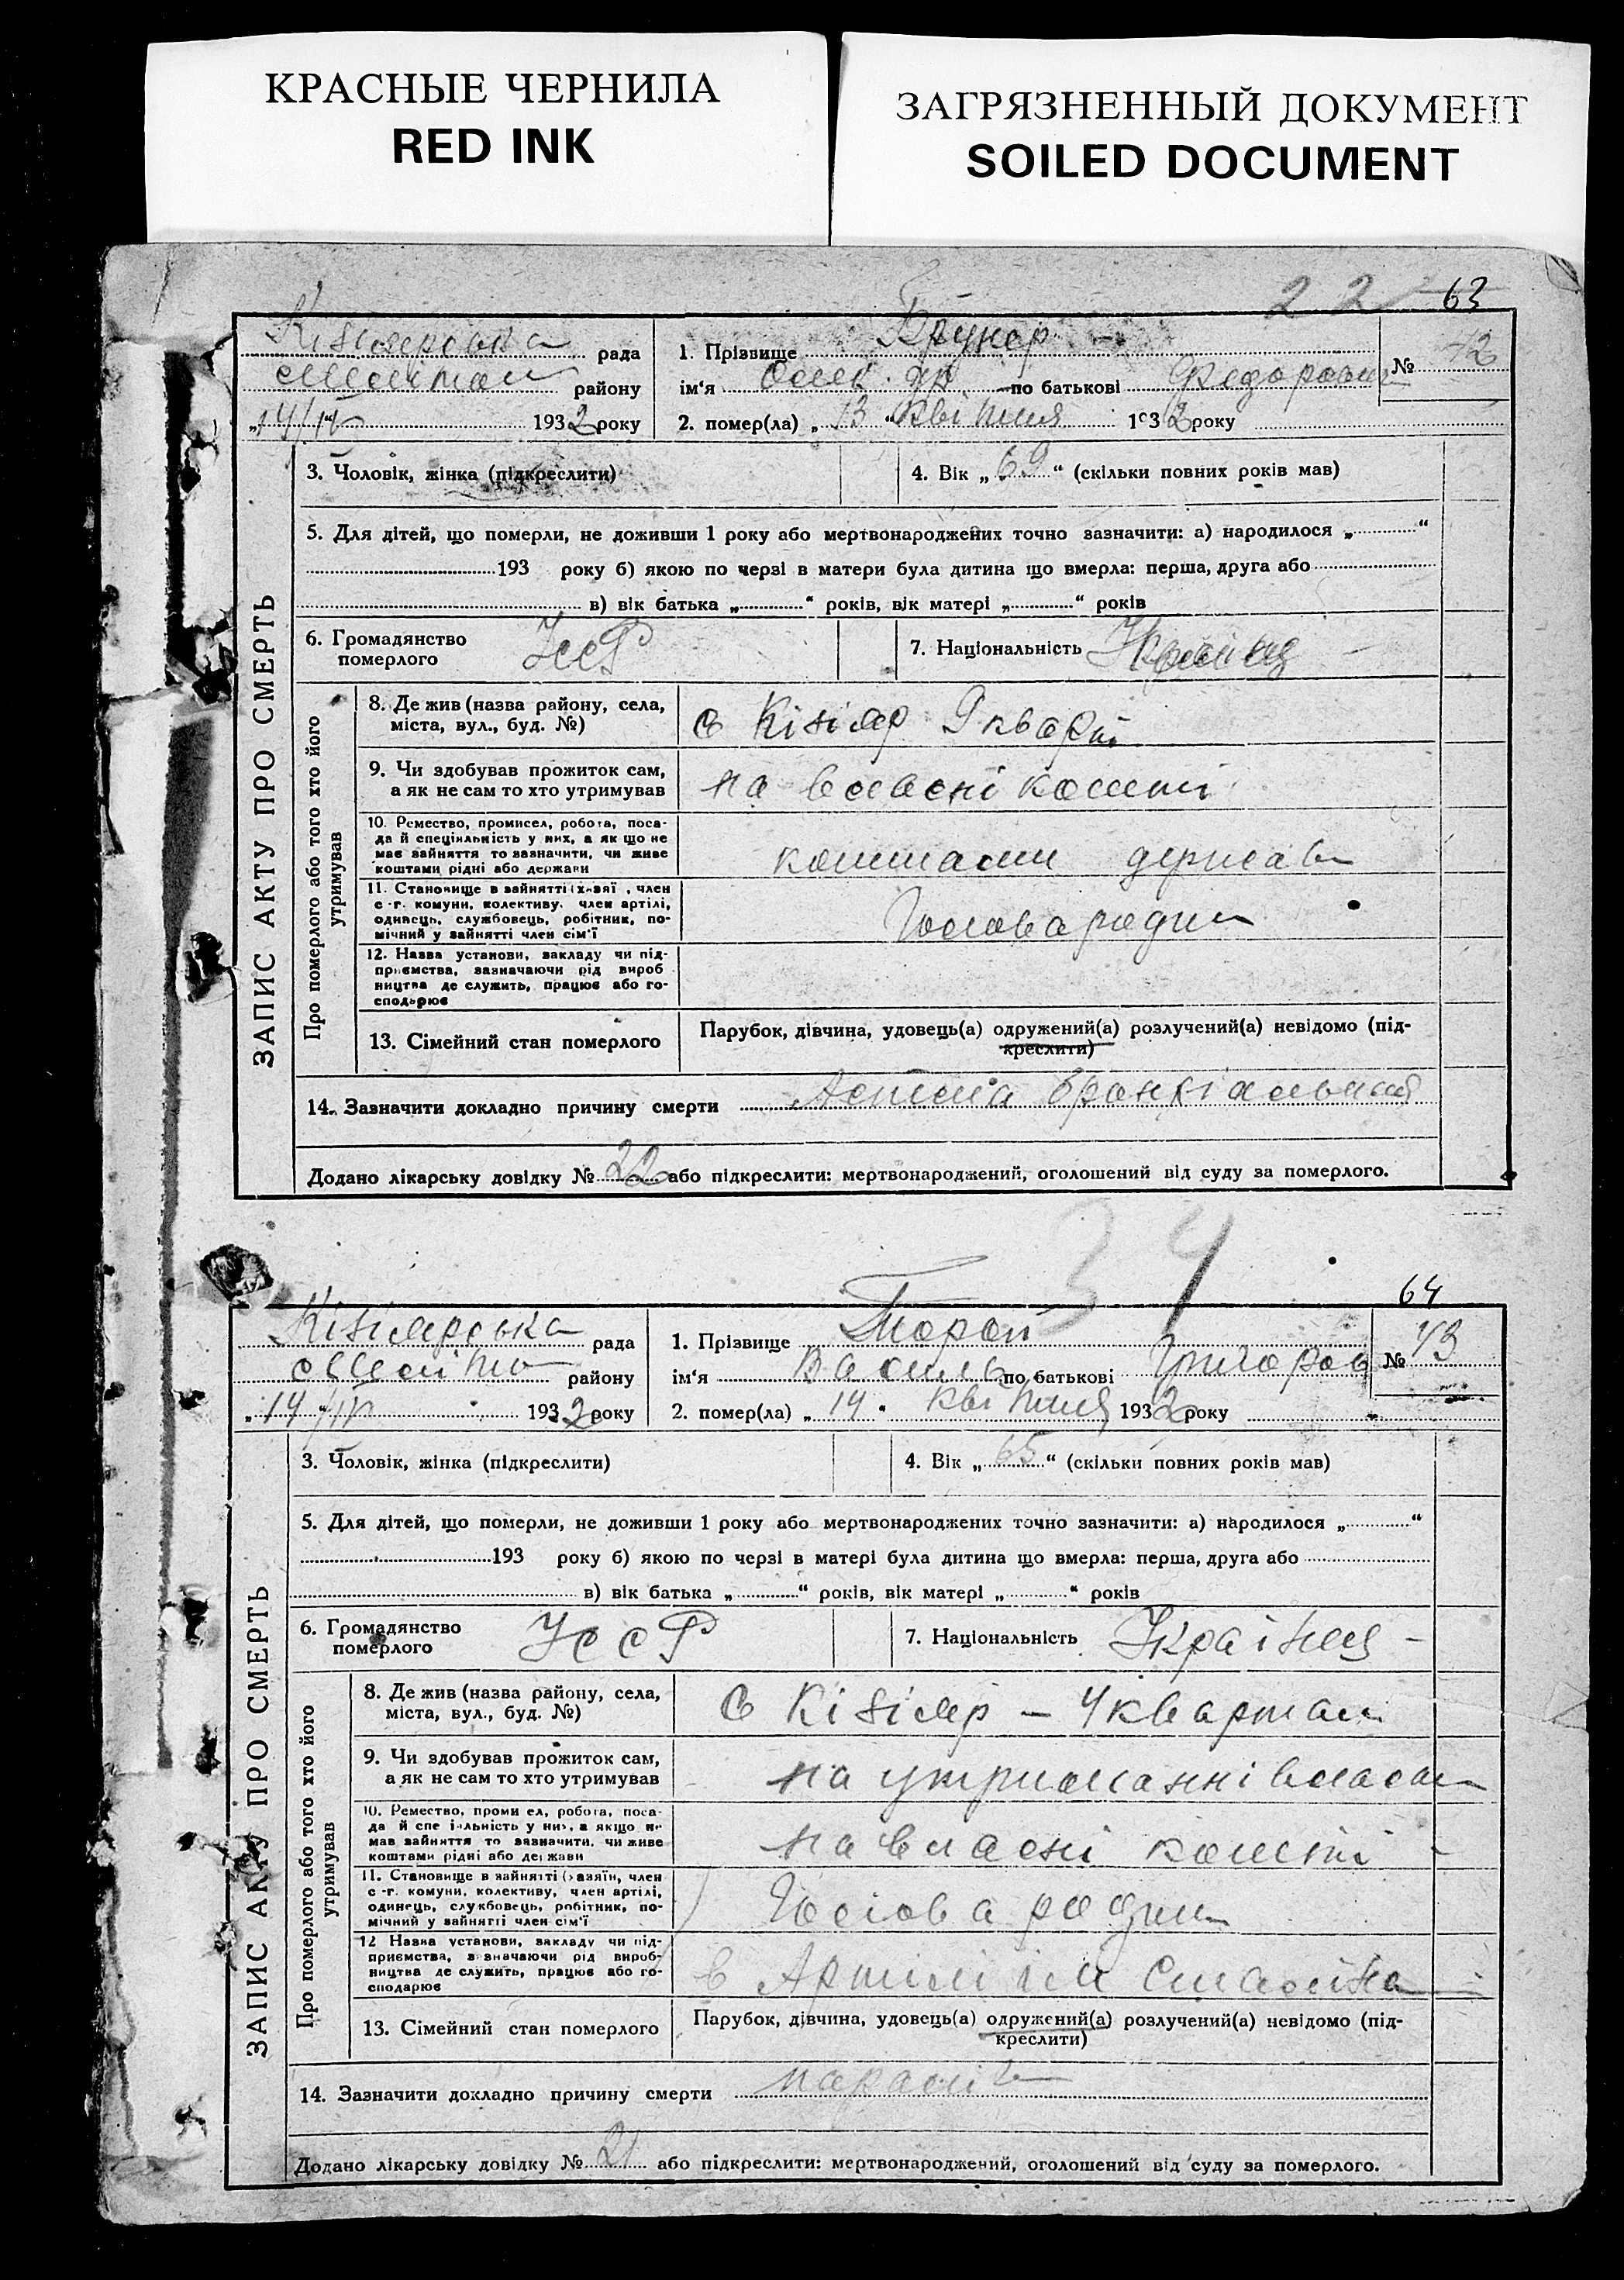 КРАСНЫЕ ЧЕРНИЛА
RED INK
ЗАГРЯЗНЕННЫЙ ДОКУМЕНТ
SOILED DOCUMENT
22 63
Кізіярська рада
Меліт район району
14/IV 1932 року
1. Прізвище №
ім‘я по батькові Федорович
2. помер(ла) „ 13 “ квітня 1932 року
ЗАПИС АКТУ ПРО СМЕРТЬ
3. Чоловік, жінка (підкреслити)
4. Вік „ 69 “ (скільки повних років мав)
5. Для дітей, що померли, не доживши 1 року або мертвонароджених точно зазначити: а) народилося „ “
193 року б) якою по черзі в матери була дитина що вмерла: перша, друга або
в) вік батька „ “ років, вік матері „ “ років
6. Громадянство померлого УССР
7. Національність
Про померлого або того хто його утримував
8. Де жив (назва району, села,
міста, вул., буд. №)
с Кізіяр 9 кварт
9. Чи здобував прожиток сам,
а як не сам то хто утримував
на власні кошти
10. Ремество, промисел, робота, поса-
да й спеціяльність у них, а як що не
має зайняття то зазначити, чи живе
коштами рідні або держави
коштами держав
11. Становище в зайнятті (хазяї , член
с -г. комуни, колективу, член артілі,
одинець, службовець, робітник, по-
мічний у зайнятті член сім‘ї
Голова родини
12. Назва установи, закладу чи під-
приємства, зазначаючи рід вироб
ництва де служить, працює або го-
сподарює
13. Сімейний стан померлого
Парубок, дівчина, удовець(а) одружений(а) розлучений(а) невідомо (під-
креслити)
14. Зазначити докладно причину смерти Астма бронхіальная
Додано лікарську довідку № 22 або підкреслити: мертвонароджений, оголошений від суду за померлого.
34
64
Кізіярська рада
району
14/IV 1932 року
1. Прізвище № 43
ім‘я Василь по батькові Григоров
2. помер(ла) „ 14 “ квітня 1932 року
ЗАПИС АКТУ ПРО СМЕРТЬ
3. Чоловік, жінка (підкреслити)
4. Вік „ 65 “ (скільки повних років мав)
5. Для дітей, що померли, не доживши 1 року або мертвонароджених точно зазначити: а) народилося „ “
193 року б) якою по черзі в матері була дитина що вмерла: перша, друга або
в) вік батька „ “ років, вік матері „ “ років
6. Громадянство померлого УССР
7. Національність Українец
Про померлого або того хто його утримував
8. Де жив (назва району, села,
міста, вул., буд. №)
с Кізіяр – 4 квартал
9. Чи здобував прожиток сам,
а як не сам то хто утримував
на утриманні власн
10. Ремество, проми ел, робота, поса-
да й спе іяльність у них, а якщо не
мав зайняття то зазначити, чи живе
коштами рідні або держави
на власні кошти
11. Становище в зайнятті (хазяїн, член
с -г. комуни, колективу, член артілі,
одинець, службовець, робітник, по-
мічний у зайнятті член сім‘ї
Голова родини
12 Назва установи, закладу чи під-
приємства, зазначаючи рід вироб-
ництва де служить, працює або го-
сподарює
в Артілі ім Сталіна
13. Сімейний стан померлого
Парубок, дівчина, удовець(а) одружений(а) розлучений(а) невідомо (під-
креслити)
14. Зазначити докладно причину смерти параліч
Додано лікарську довідку № 21 або підкреслити: мертвонароджений, оголошений від суду за померлого.